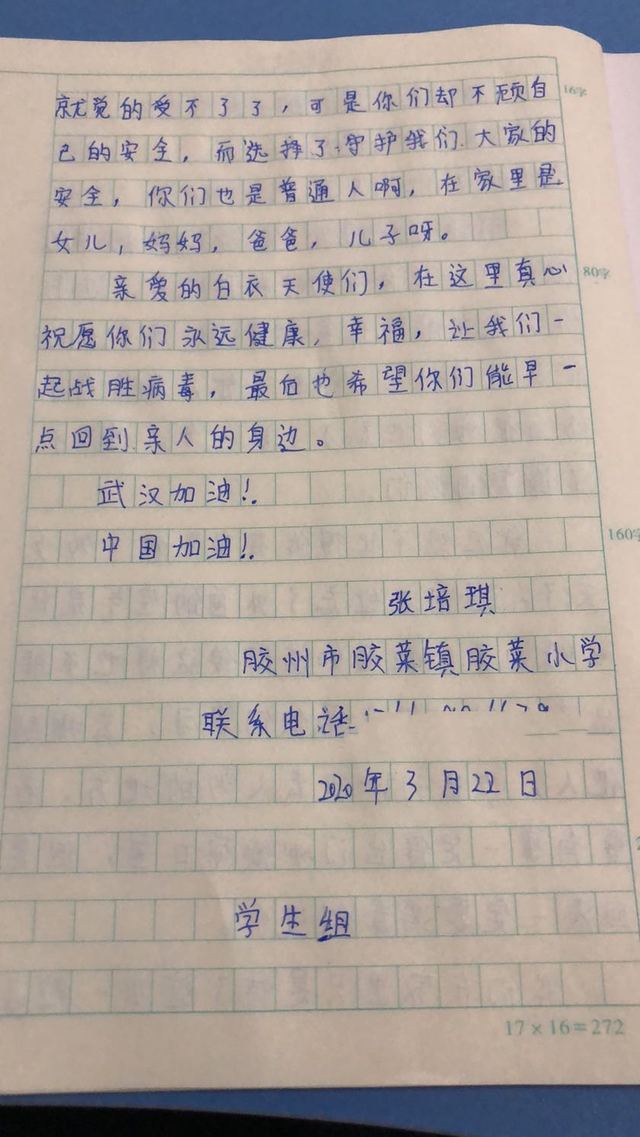 就觉的受不了了，可是你们却不顾自
己的安全，而选择了守护我们大家的
安全，你们也是普通人啊，在家里是
女儿，妈妈，爸爸，儿子呀。
亲爱的白衣天使们，在这里真心
祝愿你们永远健康，幸福，让我们一
起战胜病毒，最后也希望你们能早一
点回到亲人的身边。
武汉加油！
中国加油！
张培琪
胶州市胶莱镇胶莱小学
联系电话
2020年3月22日
学生组
16字
80字
160字
17×16=272